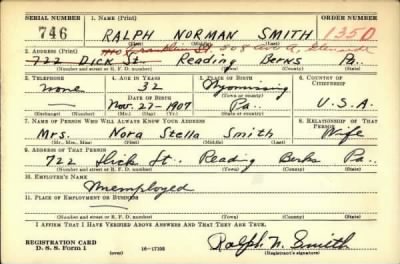 SERIAL NUMBER 1. NAME (Print) ORDER NUMBER
746 RALPH NORMAN SMITH 1350
(First) (Middle) (Last)
2. ADDRESS (Print)
722 Dick St. Reading Berks Pa.
(Number and street or R. F. D. number) (Town) (County) (State)
3. TELEPHONE 4. AGE IN YEARS 5. PLACE OF BIRTH 6. COUNTRY OF CITIZENSHIP
none 32 Wyomissing
DATE OF BIRTH (Town or county)
Nov. 27-1907 Pa. U.S.A.
(Exchange) (Number) (Mo.) (Day) (Yr.) (State or country)
7. NAME OF PERSON WHO WILL ALWAYS KNOW YOUR ADDRESS 8. RELATIONSHIP OF THAT PERSON
Mrs. Nora Stella Smith Wife
(Mr., Mrs., Miss) (First) (Middle) (Last)
9. ADDRESS OF THAT PERSON
722 Dick St. Reading Berks Pa.
(Number and street or R. F. D. number) (Town) (County) (State)
10. EMPLOYER'S NAME
Unemployed
11. PLACE OF EMPLOYMENT OR BUSINESS
(Number and street or R. F. D. number) (Town) (County) (State)
I AFFIRM THAT I HAVE VERIFIED ABOVE ANSWERS AND THAT THEY ARE TRUE.
REGISTRATION CARD
D. S. S. Form 1 (over) 16-17105 Ralph N. Smith
(Registrant's signature)